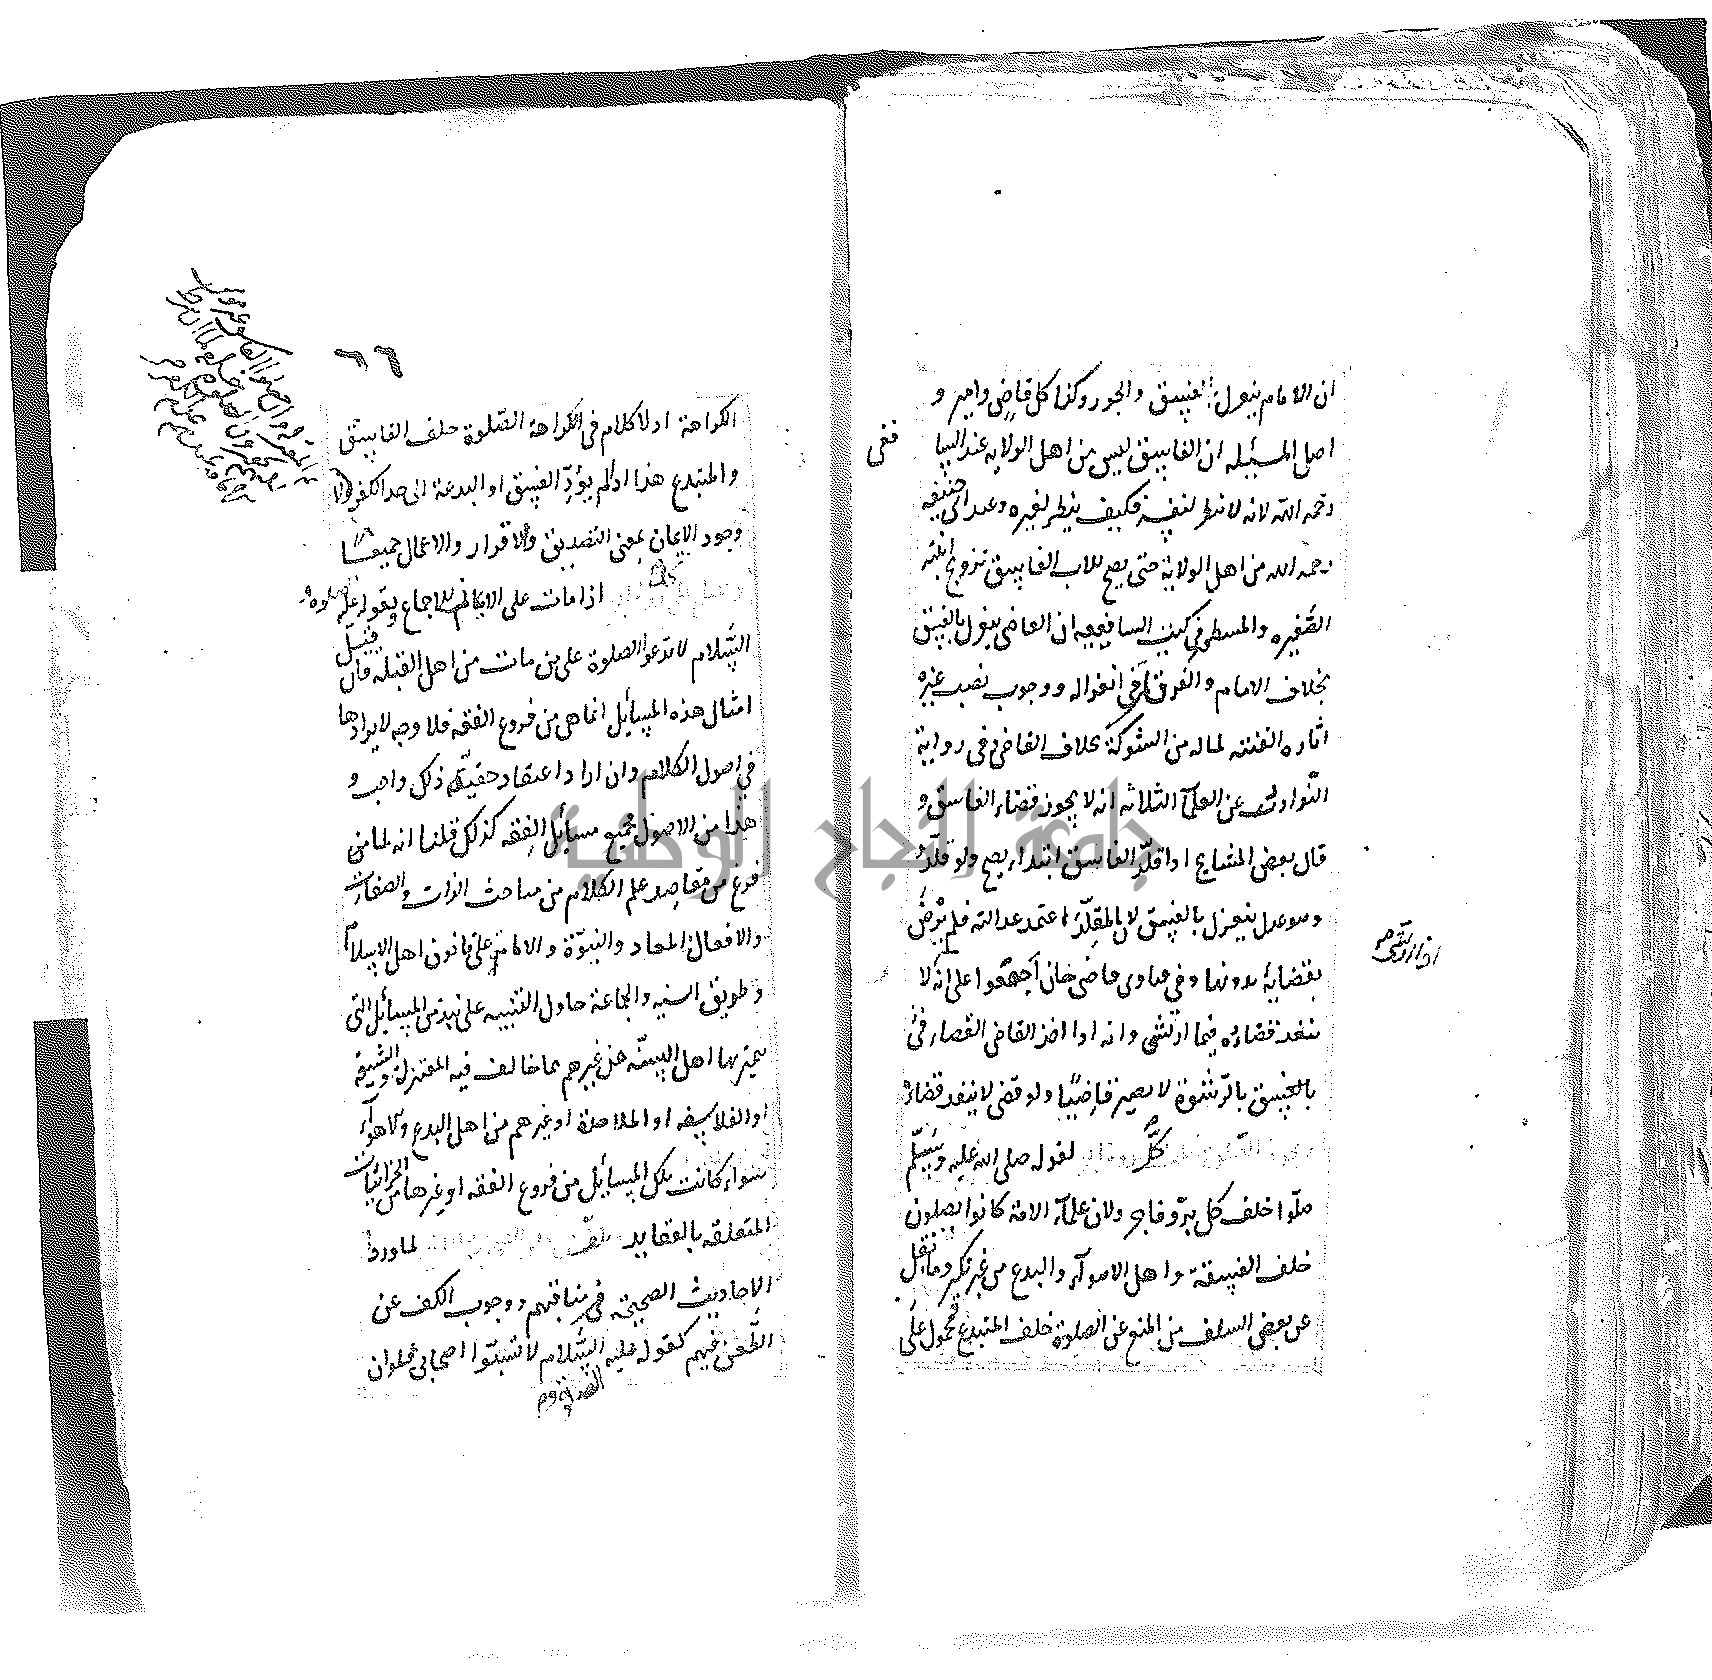 ان الامام ينعزل بالفسق والجور وكذا كل قاضي وامير و
اصل المسئلة ان الفاسق ليس من اهل الولاية عند الشا
فعى
رحمه الله لانه لا ينظر لنفسه فكيف ينظر لغيره وعند ابى حنيفه
رحمه الله من اهل الولاية حتى يصح للاب الفاسق تزويج ابنته
الصغيره والمسطور فى كتب الشافعيه ان القاضى ينعزل بالفسق
بخلاف الامام والفرق ان فى انعزاله ووجوب نصب غيره
اثارة الفتنه لماله من الشوكة بخلاف القاضى وفى رواية
النوادر عن العلمآ الثلاثه انه لا يجوز قضاء الفاسق و
قال بعض المشايخ اذا قلد الفاسق ابتداء يصح ولو قلد
وهو عدل ينعزل بالفسق لان المقلد اعتمد عدالته فلم يرض
بقضايه بدونها وفى فتاوى قاضى خان اجمعوا على انه لا
اذا ارتشى
ينفذ قضاءه فيما ارتشى وانه اذا اخذ القاضى القضاء
بالرشوة لا يصير قاضيا ولو قضى لا ينفذ قضاءه
كل لقوله صلى الله عليه وسلم
صلّوا خلف كل برّ وفاجر ولان علمآء الامة كانوا يصلون
خلف الفسقة واهل الاهوآء والبدع من غير نكير وما نقل
عن بعض السلف من المنع عن الصلوة خلف المبتدع فمحمول على
٦٦
الكراهة اذ لا كلام فى كراهة الصلوة خلف الفاسق
والمبتدع هذا اذا لم يؤدّ الفسق او البدعة الى حد الكفر
وجود الايمان بمعنى التصديق والاقرار والاعمال جميعا
اذا مات على الايمان للاجماع ولقوله عليه الصلوة و
السّلام لا تدعوا الصلوة على من مات من اهل القبله فان قيل
امثال هذه المسآئل انما هى من فروع الفقه فلا وجه لايرادها
فى اصول الكلام وان اراد اعتقاد حقية ذلك واجب و
هذا من الاصول فجميع مسائل الفقه كذلك قلنا انه لما
فرغ من مقاصد علم الكلام من مباحث الذات والصفات
والافعال والمعاد والنبوّة والامامة على قانون اهل الاسلام
وطريق السنة والجماعة حاول التنبيه على نبذ من المسآئل التى
يتميز بها اهل السنّه من غيرهم مما خالف فيه المعتزلة والشيعة
او الفلاسفه او الملاحدة او غيرهم من اهل البدع والاهوآء
سواء كانت تلك المسآئل من فروع الفقه او غيرها من الجزئيات
المتعلقة بالعقايد لما ورد
الاحاديث الصحيحة فى مناقبهم ووجوب الكف عن
الطّعن فيهم كقوله عليه السّلام لا تسبّوا اصحابى فلو ان